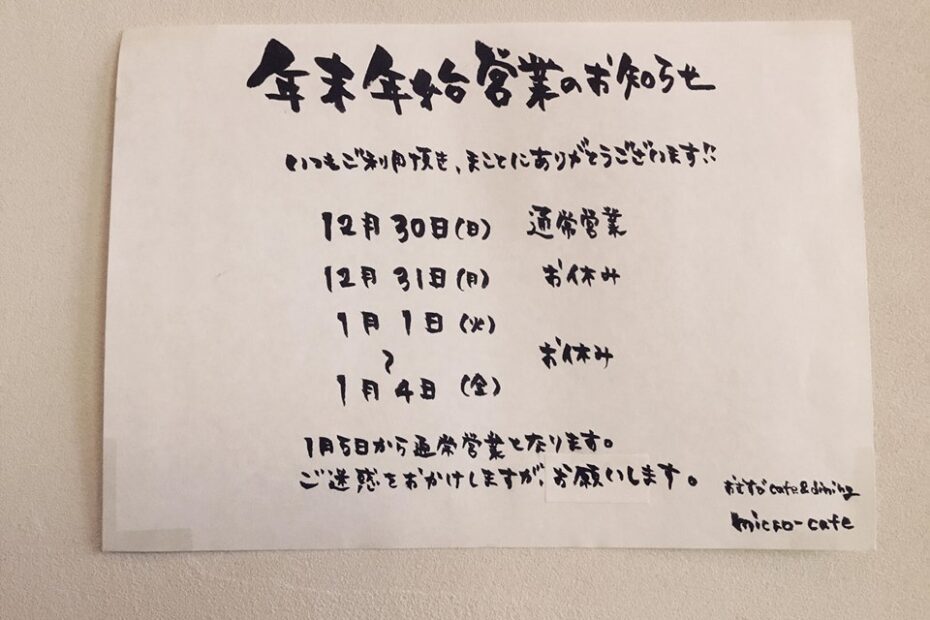 年末年始営業のお知らせ
いつもご利用頂き、まことにありがとうございます!!
12月30日(日) 通常営業
12月31日(月) お休み
1月1日(火)
〜 お休み
1月4日(金)
1月5日から通常営業となります。
ご迷惑をおかけしますが、お願いします。
おむすびcafe&dining
micro-cafe